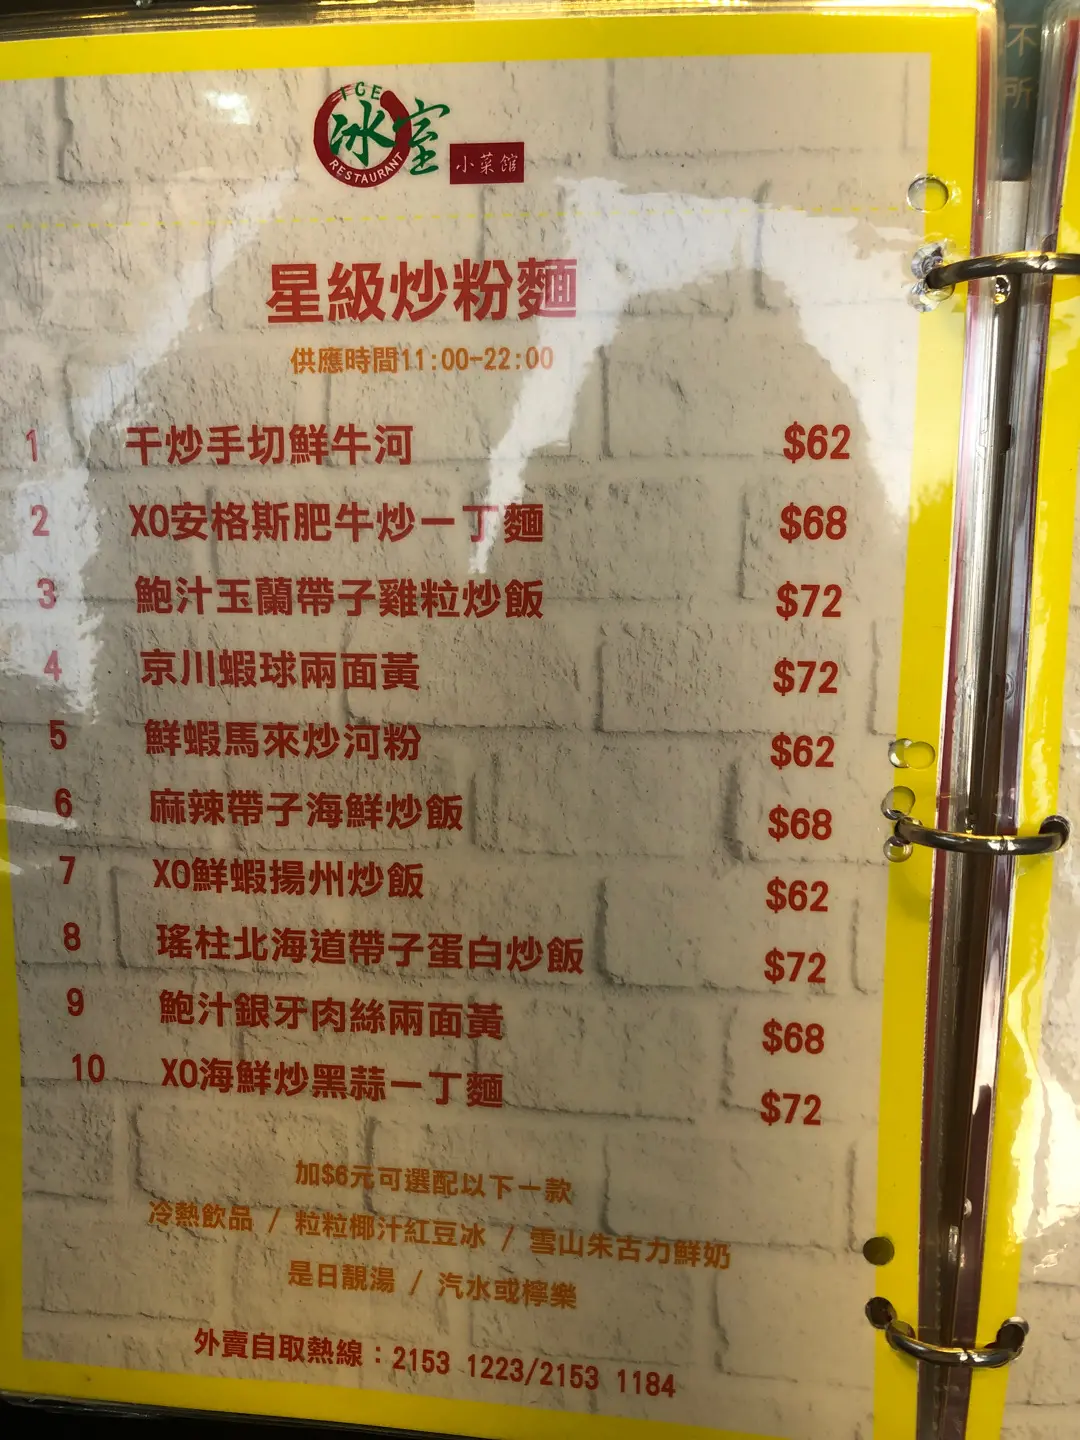 ICE
冰室
RESTAURANT
小菜館
星級炒粉麵
供應時間11:00-22:00
1 干炒手切鮮牛河 $62
2 XO安格斯肥牛炒一丁麵 $68
3 鮑汁玉蘭帶子雞粒炒飯 $72
4 京川蝦球兩面黃 $72
5 鮮蝦馬來炒河粉 $62
6 麻辣帶子海鮮炒飯 $68
7 XO鮮蝦揚州炒飯 $62
8 瑤柱北海道帶子蛋白炒飯 $72
9 鮑汁銀牙肉絲兩面黃 $68
10 XO海鮮炒黑蒜一丁麵 $72
加$6元可選配以下一款
冷熱飲品 / 粒粒椰汁紅豆冰 / 雪山朱古力鮮奶
是日靚湯 / 汽水或檸樂
外賣自取熱線：2153 1223/2153 1184
不
所